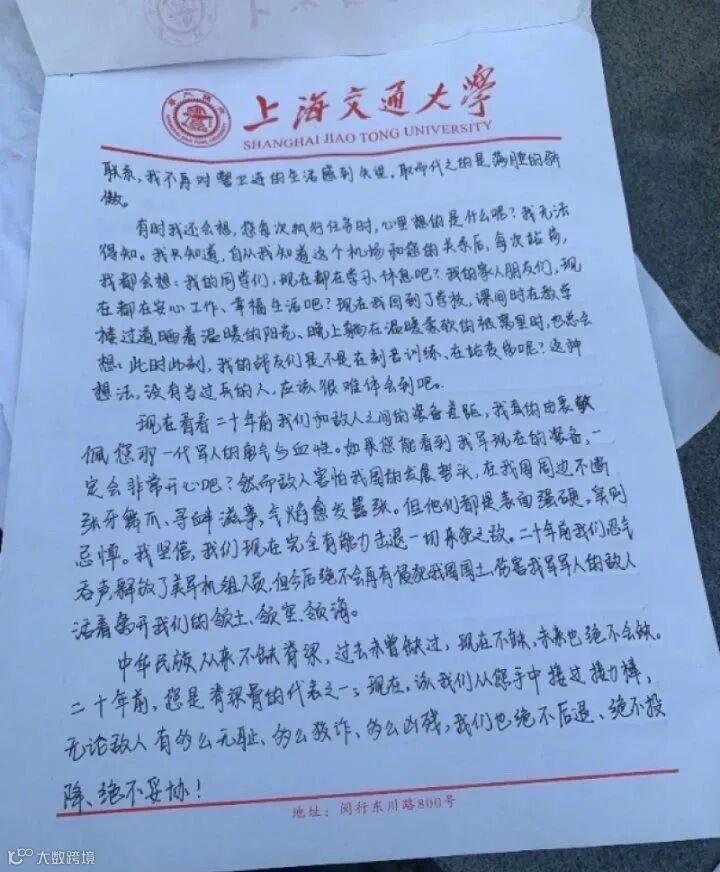 上海交通大学
SHANGHAI JIAO TONG UNIVERSITY
联系,我不再对警卫连的生活感到失望。取而代之的是满腔的骄
傲。
有时我还会想,您每次执行任务时,心里想的是什么呢?我无法
得知。我只知道,自从我知道这个机场和您的关系后,每次站岗,
我都会想:我的同学们,现在都在学习、休息吧?我的家人朋友们,现
在都在安心工作、幸福生活吧?现在我回到了学校,课间时在教学
楼过道晒着温暖的阳光、晚上躺在温暖柔软的被窝里时,也总会
想:此时此刻,我的战友们是不是在刻苦训练、在站夜岗呢?这种
想法,没有当过兵的人,应该很难体会到吧。
现在看看二十年前我们和敌人之间的装备差距,我真的由衷敬
佩您那一代军人的勇气与血性。如果您能看到我军现在的装备,一
定会非常开心吧?然而敌人害怕我国的发展势头,在我国周边不断
张牙舞爪、寻衅滋事,气焰愈发嚣张。但他们都是表面强硬,实则
忌惮。我坚信,我们现在完全有能力击退一切来犯之敌。二十年前我们忍气
吞声,释放了美军机组人员,但今后绝不会再有侵犯我国国土、伤害我军军人的敌人
活着离开我们的领土、领空、领海。
中华民族从来不缺脊梁,过去未曾缺过,现在不缺,未来也绝不会缺。
二十年前,您是脊梁骨的代表之一;现在,该我们从您手中接过接力棒,
无论敌人有多么无耻、多么狡诈、多么凶残,我们也绝不后退、绝不投
降、绝不妥协!
地址:闵行东川路800号
大数跨境